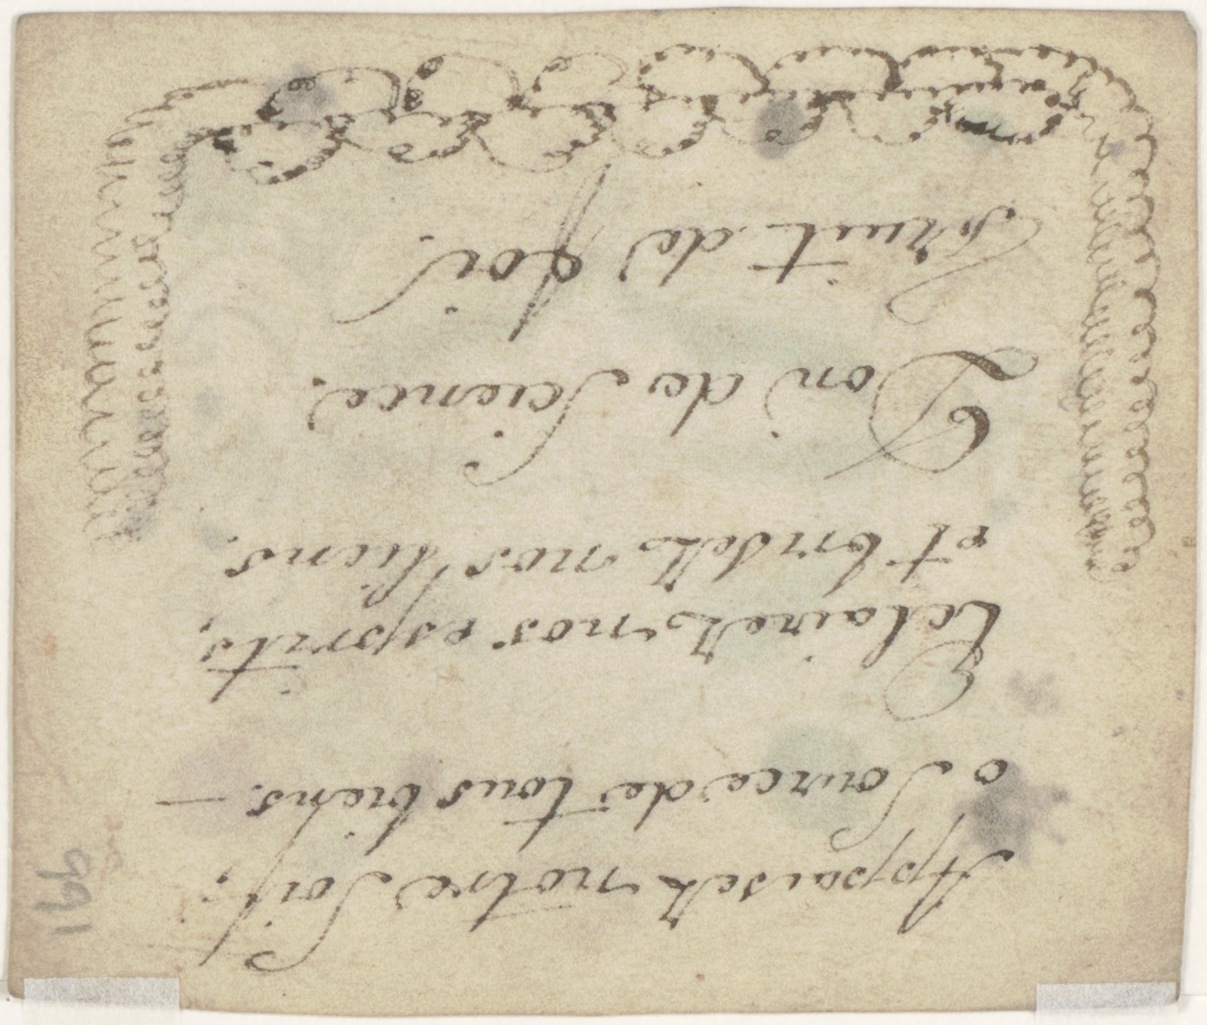 Appaisez notre Soif,
o Source de tous biens. —
Eclairez nos esprits,
et brisez nos liens.
Don de Science.
Fruit de foi.